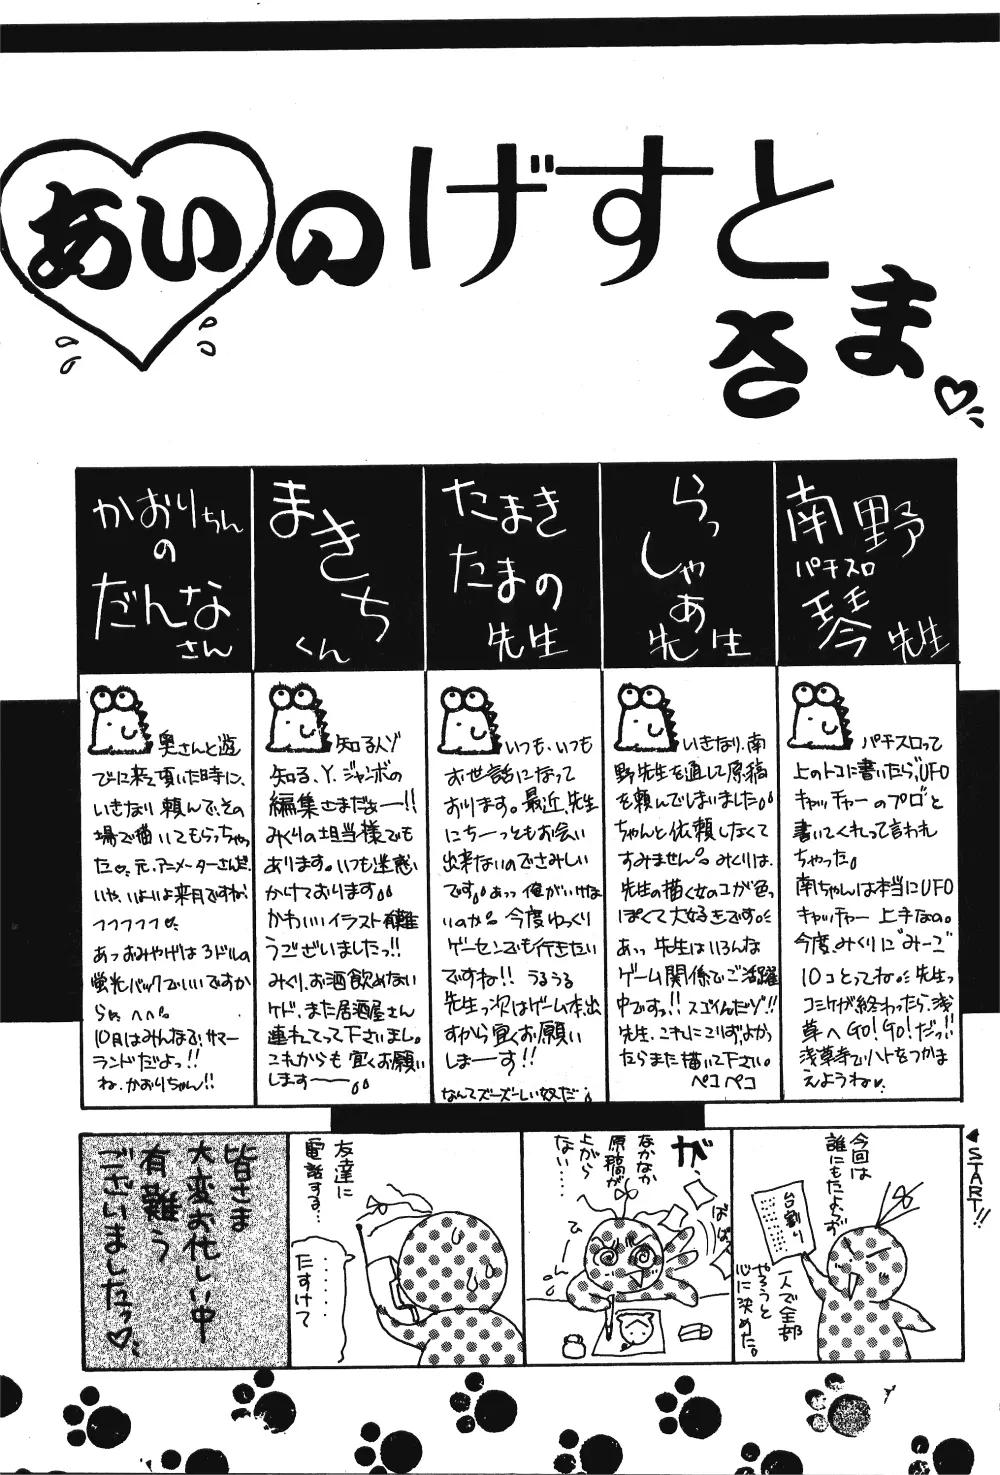 あいのげすと
さま
南野
パチスロ
琴先生
パチスロって
上のトコに書いたら、UFO
キャッチャーのプロ”と
書いてくれって言われ
ちゃった。
南ちゃんは本当にUFO
キャッチャー上手なの。
今度、みくりに“みーご”
10コとってね。先生っ
コミケが終わったら、浅
草へGO!GO!だっ!!
浅草寺でハトをつかま
えようね
らっ
しゃあ
先生
いきなり、南
野先生を通して原稿
を頼んでしまいました。
ちゃんと依頼しなくて
すみません。みくりは、
先生の描く女のコが色っ
ぽくて大好きです
あっ 先生はいろんな
ゲーム関係でご活躍
中ですっ!!スゴイんだゾ!!
先生、これにこりず、よかっ
たらまた描いて下さい。
ペコペコ
たまき
たまの
先生
いつも、いつも
お世話になって
おります。最近、先生
にちーっともお会い
出来ないのでさみしい
です。あっ 俺がいけな
いのか。今度ゆっくり
ゲーセンでも行きたい
ですね!!うるうる
先生っ次はゲーム本出
すから宜くお願い
しまーす!!
なんてズーズーしい奴だ
まきち
くん
知る人ゾ
知る、Y.ジャンボの
編集さまだぁー!!
みくりの担当様でも
あります。いつも迷惑
かけております
かわいいイラスト有難
うございましたっ!!
みくり、お酒飲めない
ケド、また居酒屋さん
連れてって下さいまし。
これからも宜くお願い
しますーー
かおりちん
の
だんな
さん
奥さんと遊
びに来て頂いた時に、
いきなり頼んで、その
場で描いてもらっちゃっ
た 元、アニメーターさんだ。
いや、いよいよ来月ですねっ
フフフフフ
あっおみやげは3ドルの
蛍光パックでいいですか
らね。へへ。
10月はみんなで、サマー
ランドだよっ!!
ね、かおりちゃん!!
START!!
今回は
誰にもたよらず
台割り
一人で全部
やろうと
心に決めた。
が、
なかなか
原稿が
上がら
ない……
ばばばっ
ひーーん
友達に
電話する…
……
たすけて
皆さま
大変お忙しい中
有難う
ございましたっ